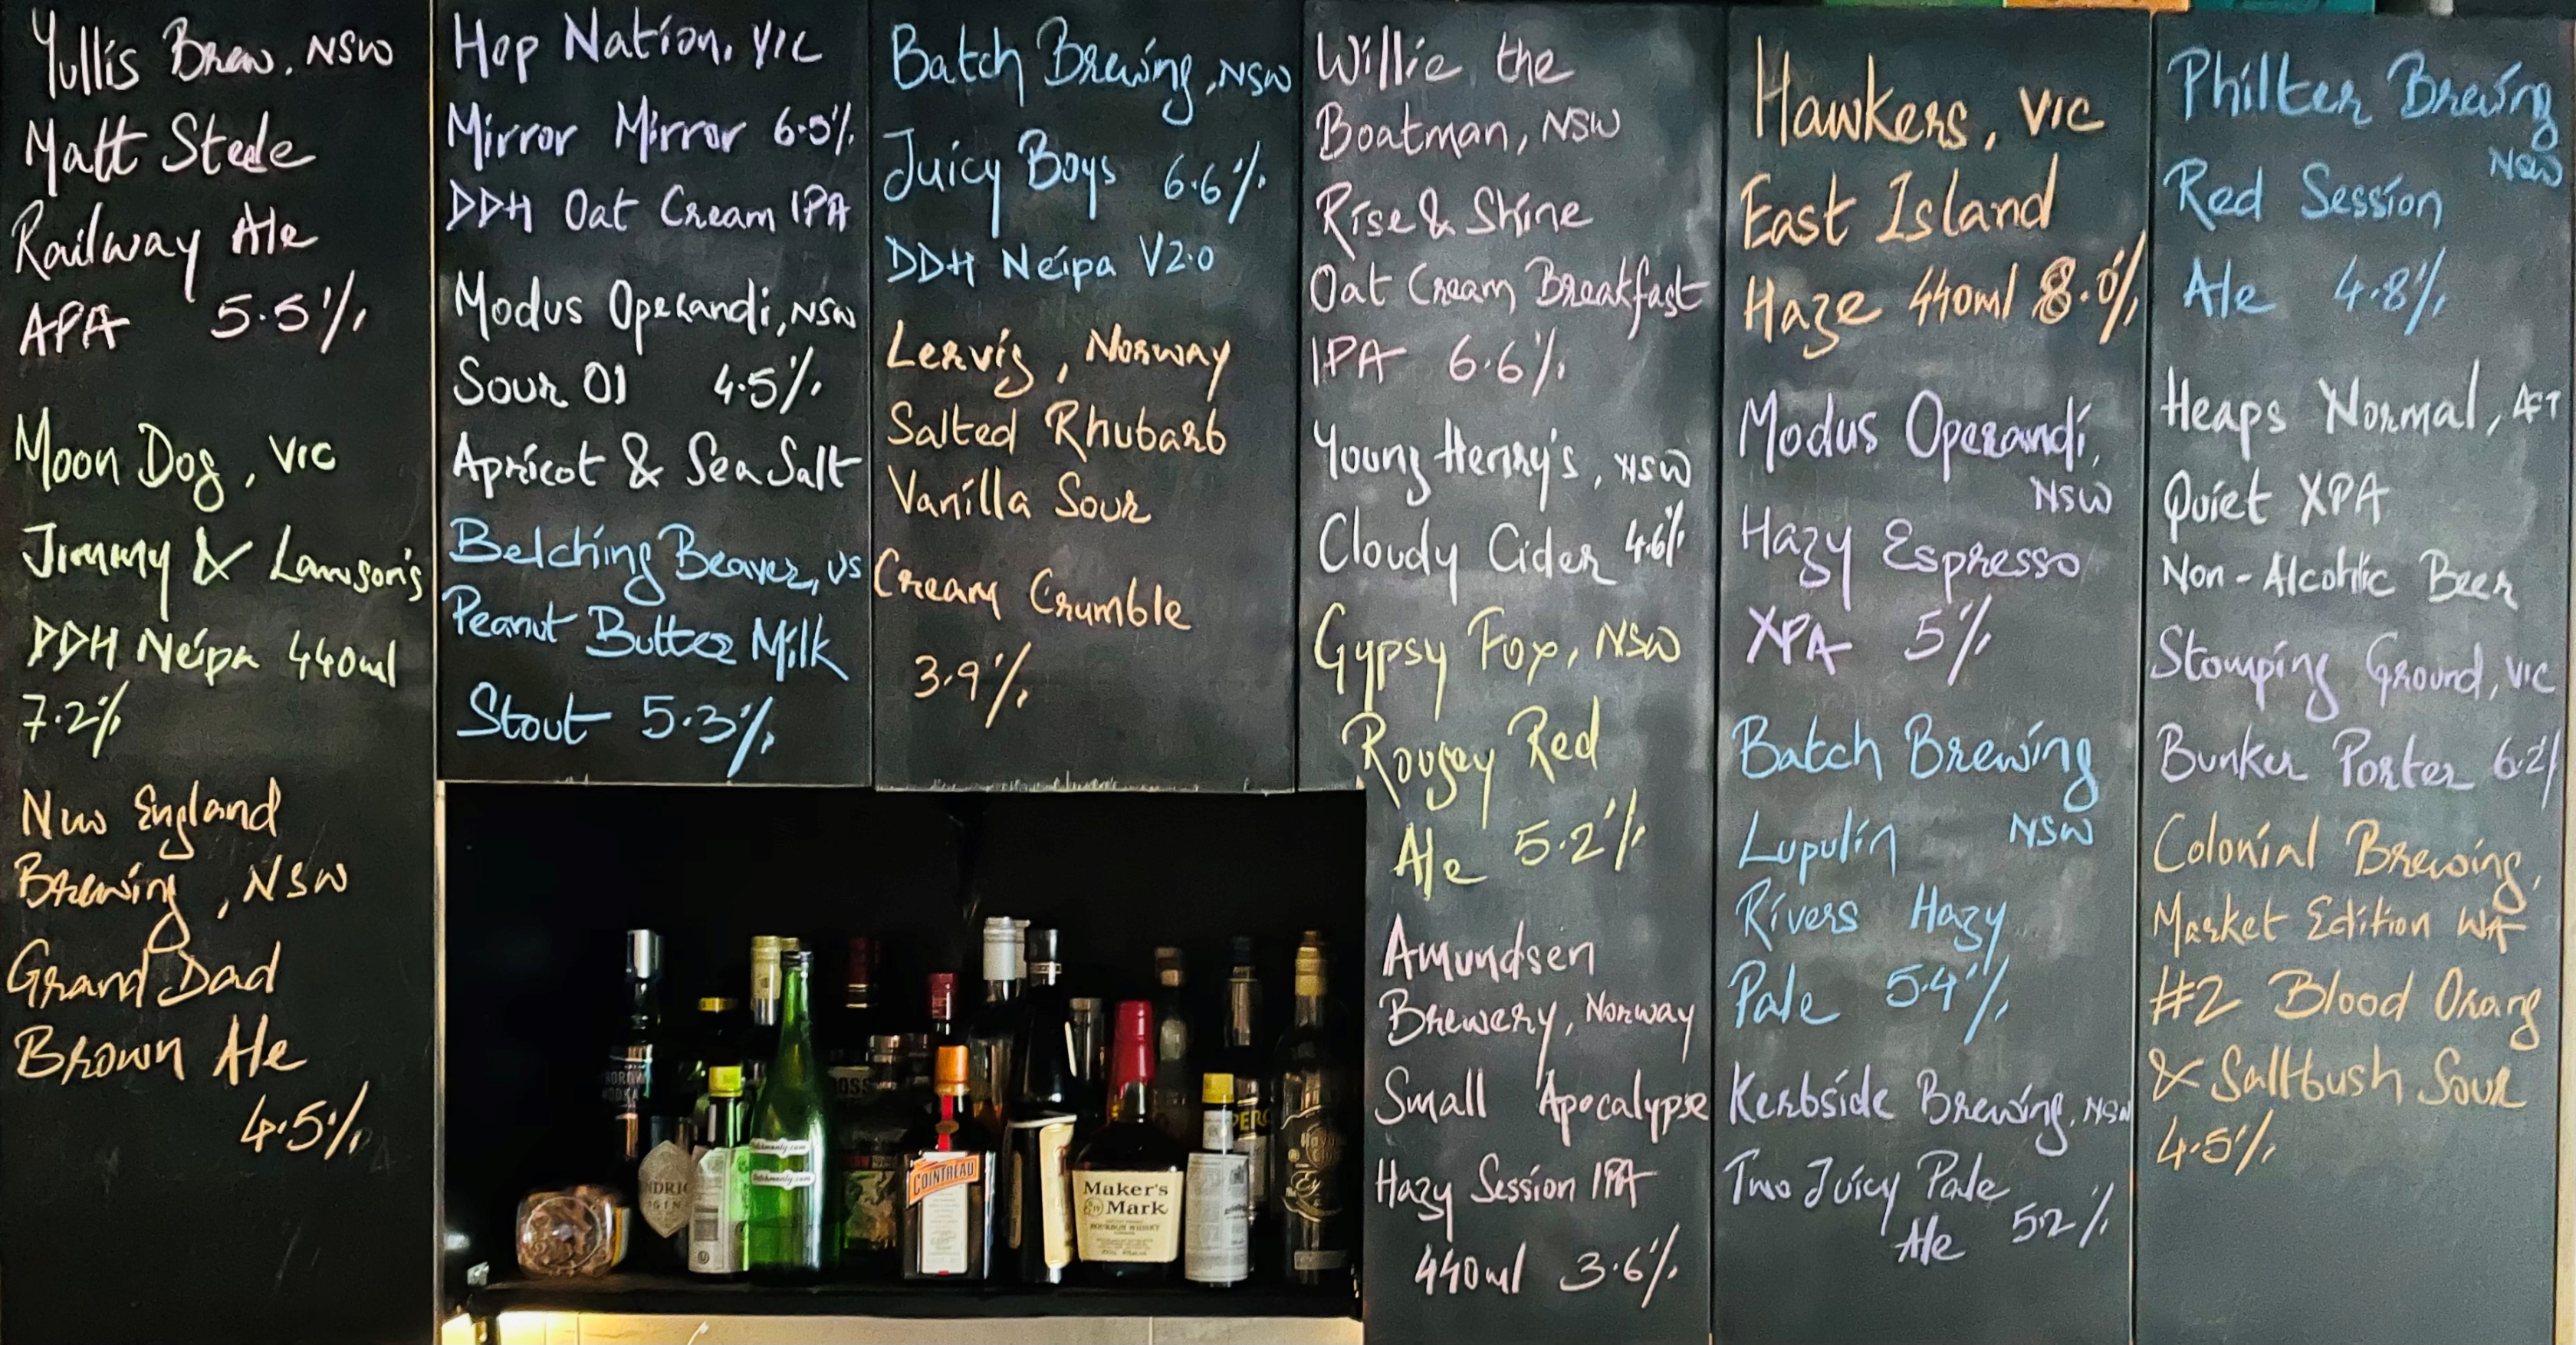 Yullis Brew, NSW
Matt Steele
Railway Ale
APA 5.5%
Moon Dog, VIC
Jimmy & Lawson's
DDH Neipa 440ml
7.2%
New England
Brewing, NSW
Grand Dad
Brown Ale
4.5%
Hop Nation, VIC
Mirror Mirror 6.5%
DDH Oat Cream IPA
Modus Operandi, NSW
Sour 01 4.5%
Apricot & Sea Salt
Belching Beaver, US
Peanut Butter Milk
Stout 5.3%
Batch Brewing, NSW
Juicy Boys 6.6%
DDH Neipa V2.0
Lervig, Norway
Salted Rhubarb
Vanilla Sour
Cream Crumble
3.9%
Willie the
Boatman, NSW
Rise & Shine
Oat Cream Breakfast
IPA 6.6%
Young Henry's, NSW
Cloudy Cider 4.6%
Gypsy Fox, NSW
Rougey Red
Ale 5.2%
Amundsen
Brewery, Norway
Small Apocalypse
Hazy Session IPA
440ml 3.6%
Hawkers, VIC
East Island
Haze 440ml 8.0%
Modus Operandi,
NSW
Hazy Espresso
XPA 5%
Batch Brewing
Lupulin NSW
Rivers Hazy
Pale 5.4%
Kerbside Brewing, NSW
Two Juicy Pale
Ale 5.2%
Philter Brewing
NSW
Red Session
Ale 4.8%
Heaps Normal, ACT
Quiet XPA
Non-Alcohlic Beer
Stomping Ground, VIC
Bunker Porter 6.2%
Colonial Brewing,
Market Edition WA
#2 Blood Orang
& Saltbush Sour
4.5%
COINTREAU
Maker's
Mark
BOURBON WHISKY